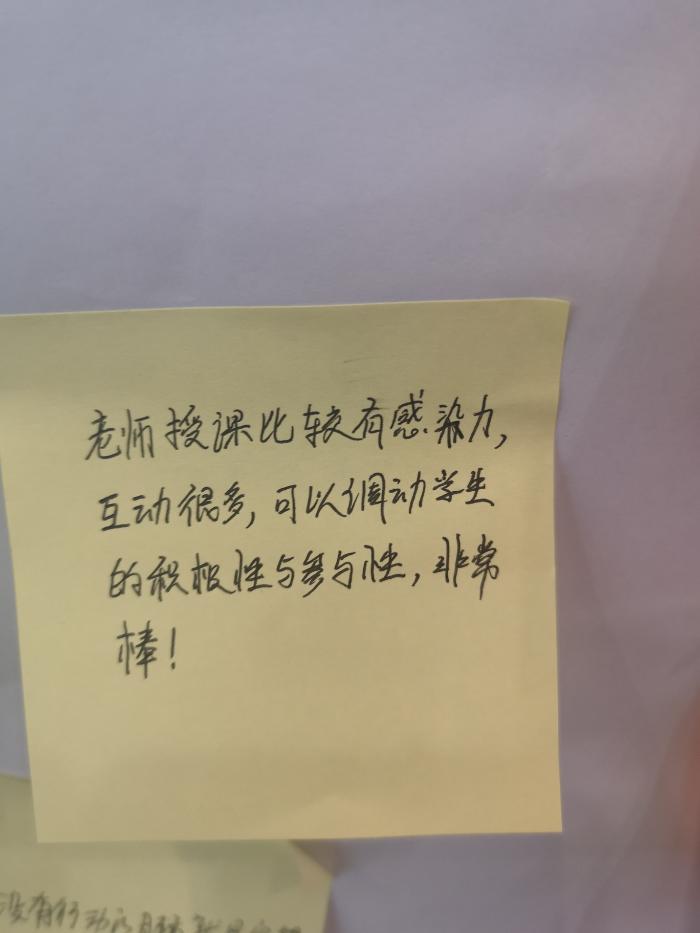 老师授课比较有感染力,
互动很多,可以调动学生
的积极性与参与性,非常
棒!
没有行动